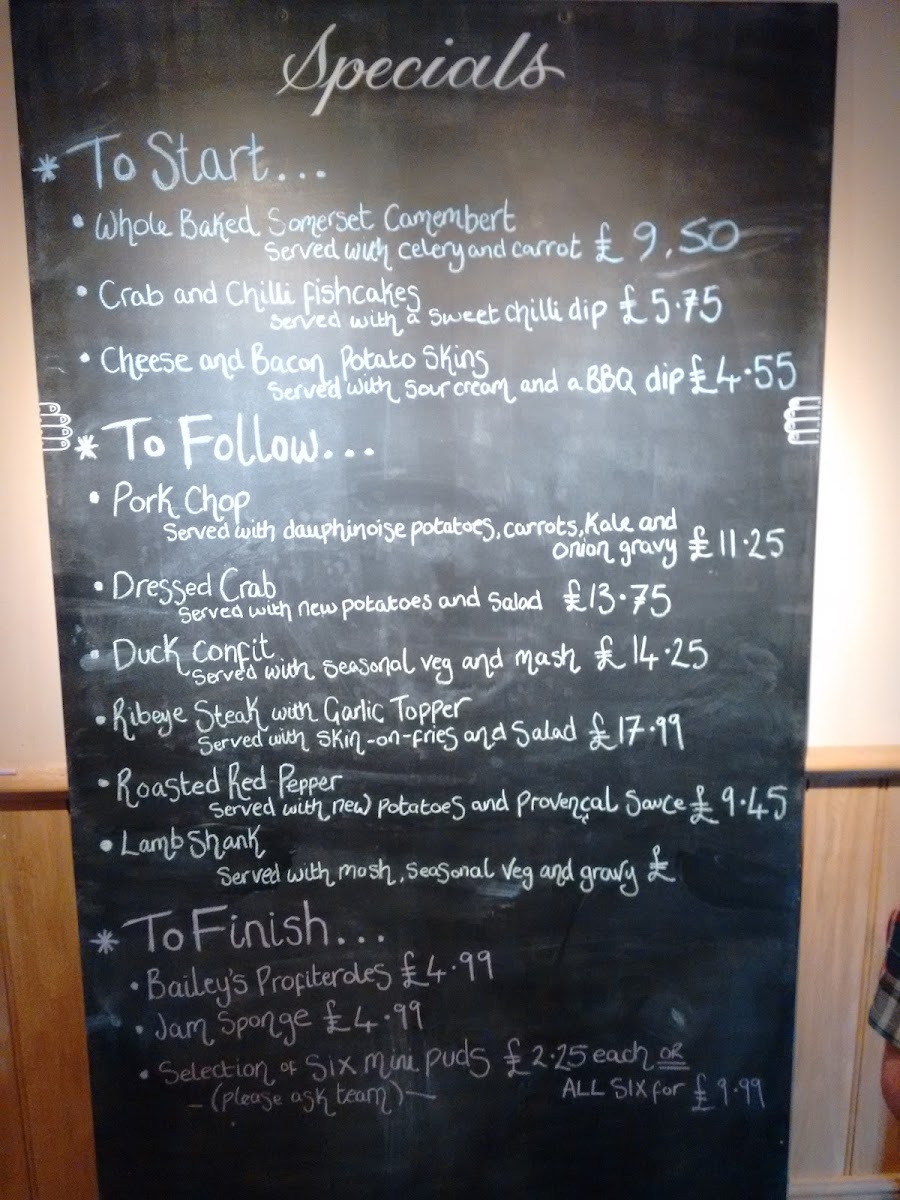 Specials
* To Start...
• Whole Baked Somerset Camembert
Served with celery and carrot £9.50
• Crab and Chilli fishcakes
Served with a sweet chilli dip £5.75
• Cheese and Bacon Potato Skins
Served with sour cream and a BBQ dip £4.55
* To Follow...
• Pork Chop
Served with dauphinoise potatoes, carrots, Kale and
onion gravy £11.25
• Dressed Crab
Served with new potatoes and Salad £13.75
• Duck Confit
Served with seasonal veg and mash £14.25
• Ribeye Steak with Garlic Topper
Served with skin-on-fries and Salad £17.99
• Roasted Red Pepper
Served with new potatoes and Provençal Sauce £9.45
• Lamb Shank
Served with mash, seasonal veg and gravy £
* To Finish...
• Bailey's Profiteroles £4.99
• Jam Sponge £4.99
• Selection of Six mini puds £2.25 each OR
- (please ask team) - ALL SIX for £9.99